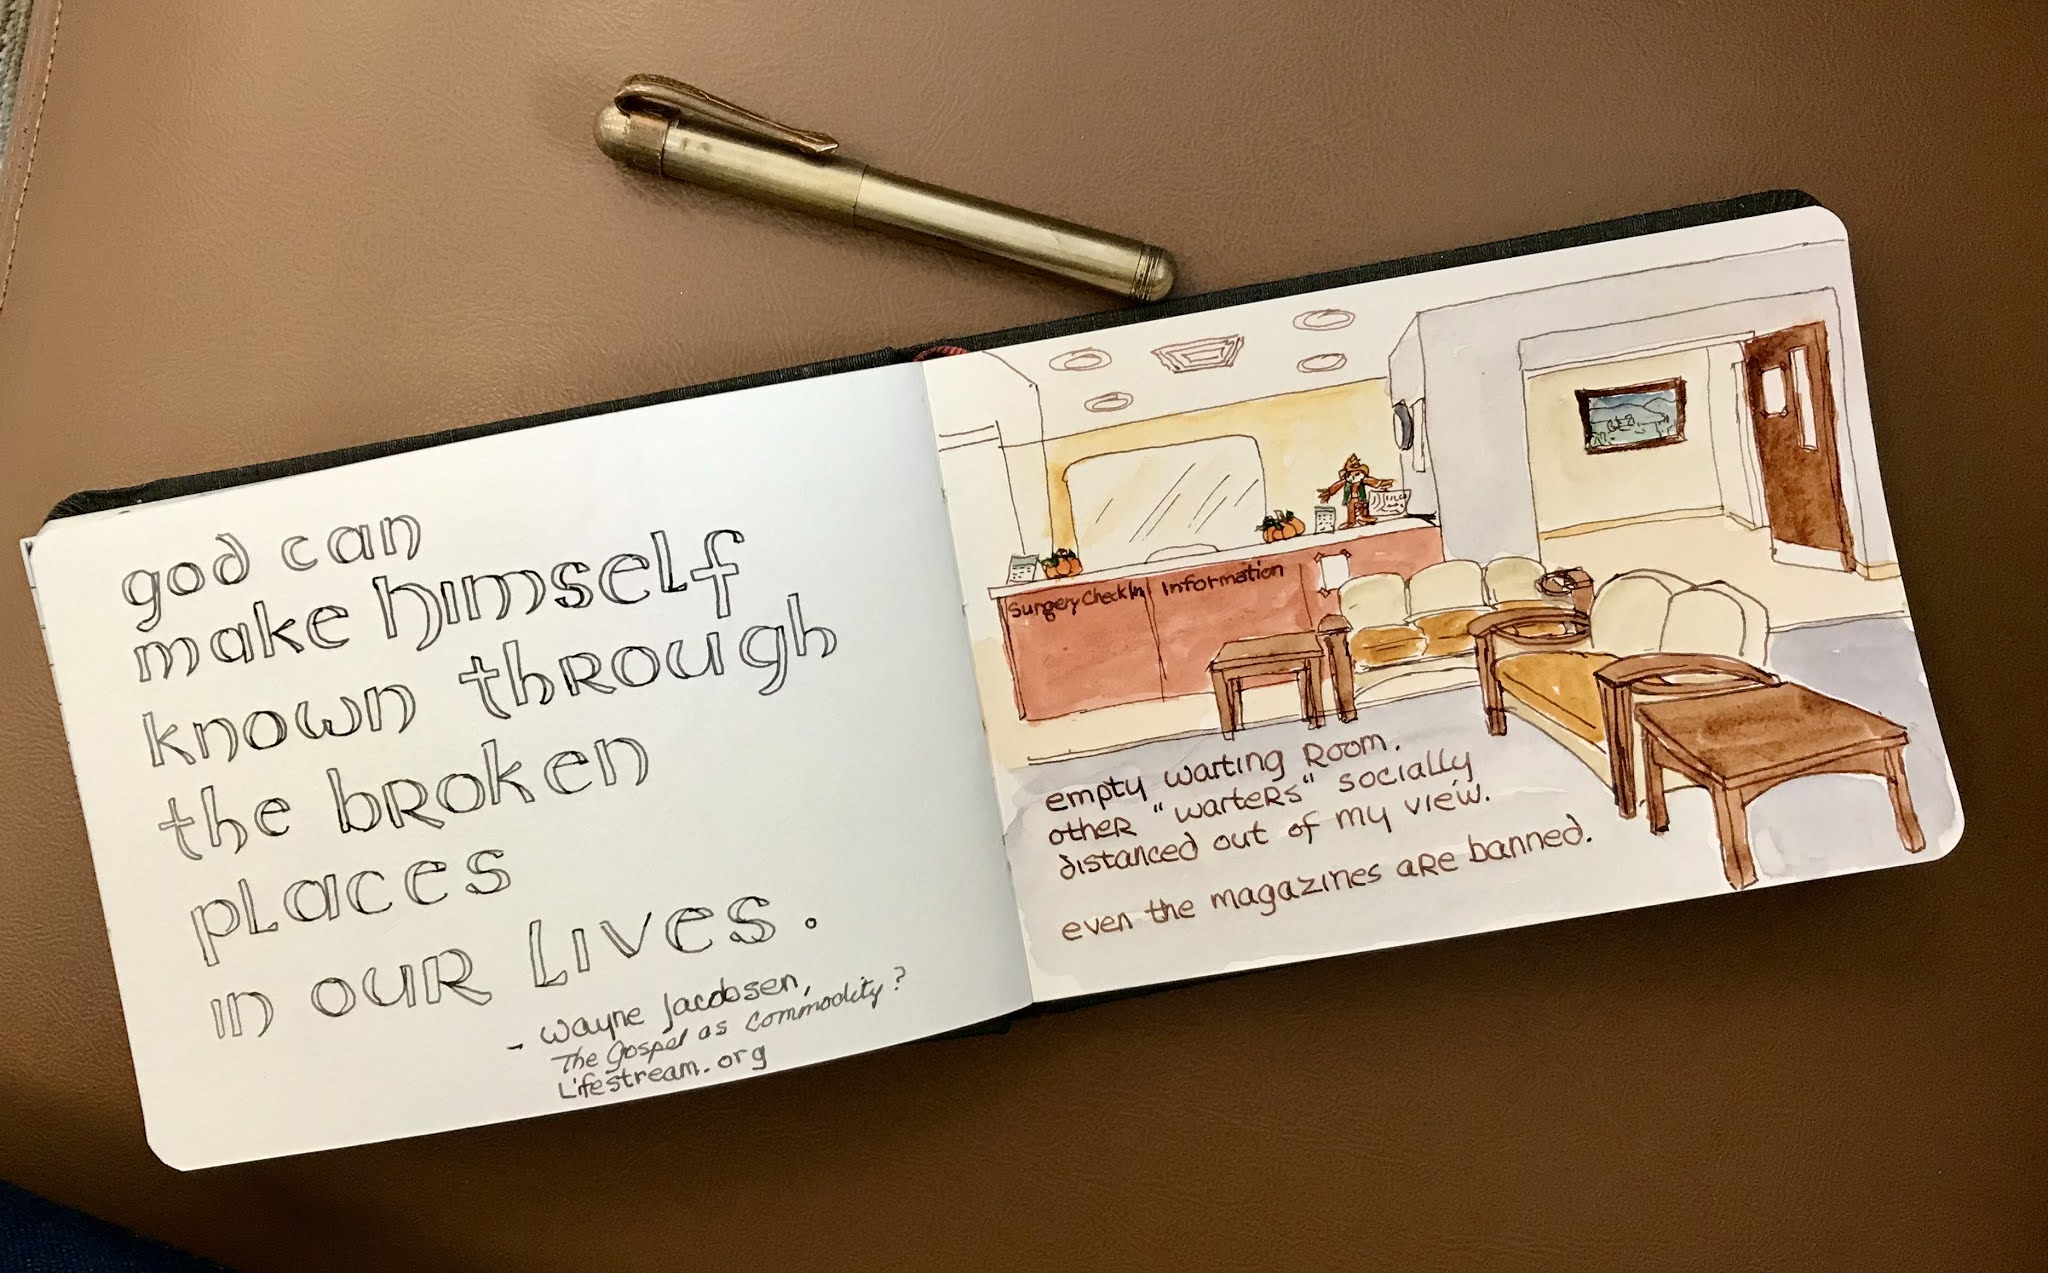 god can
make himself
known through
the broken
places
in our lives.
- wayne jacobsen,
The Gospel as commodity?
Lifestream.org
Surgery Check In Information
empty waiting Room.
other "waiters" socially
distanced out of my view.
even the magazines are banned.